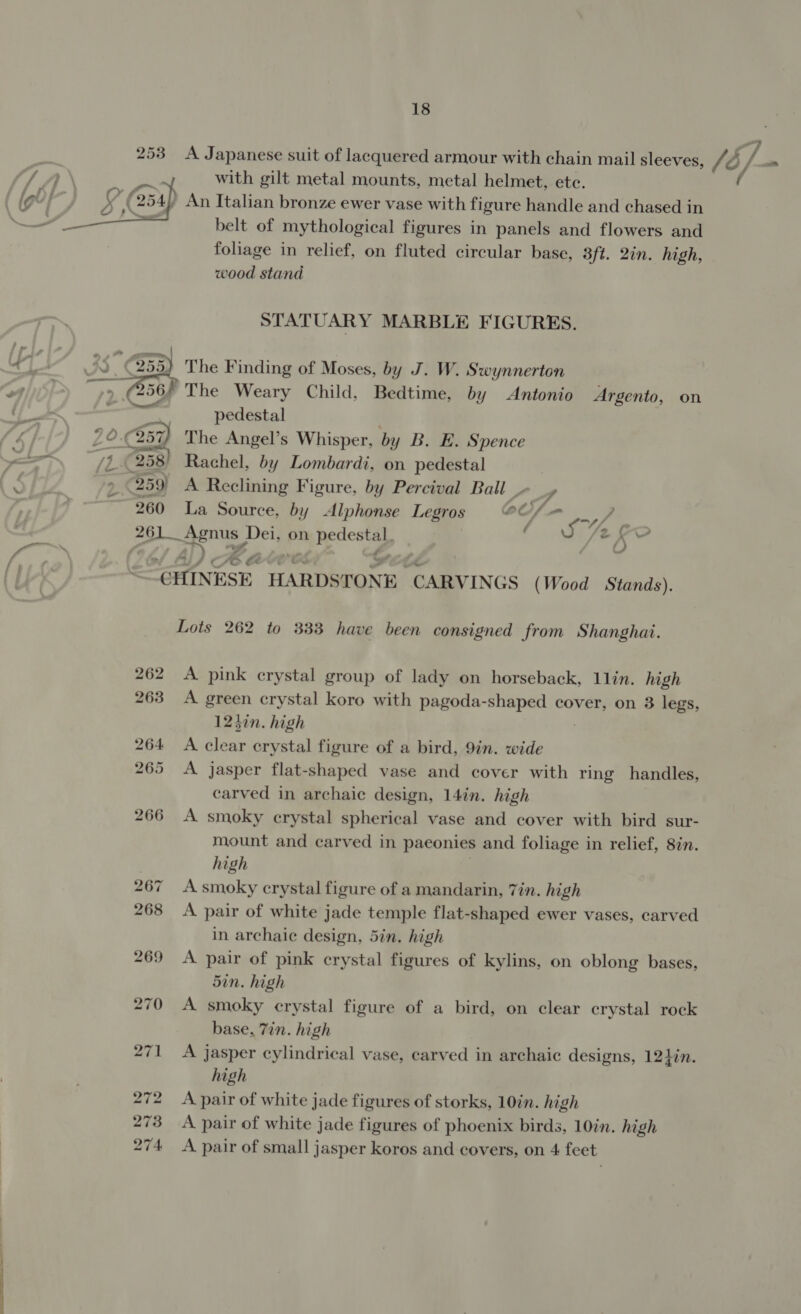 18
253 A Japanese suit of lacquered armour with chain mail sleeves,
with gilt metal mounts, metal helmet, etc.
254 An Italian bronze ewer vase with figure handle and chased in
belt of mythological figures in panels and flowers and
foliage in relief, on fluted circular base, 3ft. 2in. high,
wood stand
STATUARY MARBLE FIGURES.
255 The Finding of Moses, by J. W. Swynnerton
256 The Weary Child, Bedtime, by Antonio Argento, on
pedestal
20 257 The Angel's Whisper, by B. E. Spence
258 Rachel, by Lombardi, on pedestal
259 A Reclining Figure, by Percival Ball
260 La Source, by Alphonse Legros
261 Agnus Dei, on pedestal
CHINESE HARDSTONE CARVINGS (Wood Stands).
Lots 262 to 333 have been consigned from Shanghai.
262 A pink crystal group of lady on horseback, 11in. high
263 A green crystal koro with pagoda-shaped cover, on 3 legs,
12½in. high
264 A clear crystal figure of a bird, 9in. wide
265 A jasper flat-shaped vase and cover with ring handles,
carved in archaic design, 14in. high
266 A smoky crystal spherical vase and cover with bird sur-
mount and carved in paeonies and foliage in relief, 8in.
high
267 A smoky crystal figure of a mandarin, 7in. high
268 A pair of white jade temple flat-shaped ewer vases, carved
in archaic design, 5in. high
269 A pair of pink crystal figures of kylins, on oblong bases,
5in. high
270 A smoky crystal figure of a bird, on clear crystal rock
base, 7in. high
271 A jasper cylindrical vase, carved in archaic designs, 12½in.
high
272 A pair of white jade figures of storks, 10in. high
273 A pair of white jade figures of phoenix birds, 10in. high
274 A pair of small jasper koros and covers, on 4 feet